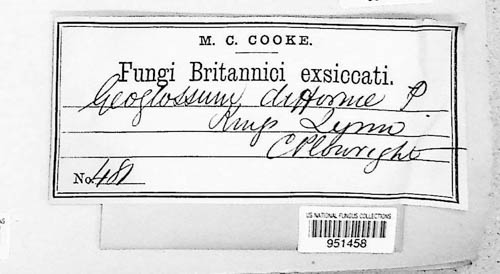 M. C. COOKE.
Fungi Britannici exsiccati.
Geoglossum difforme P
Kings Lynn
C Plowright
No 481
US NATIONAL FUNGUS COLLECTIONS
951458